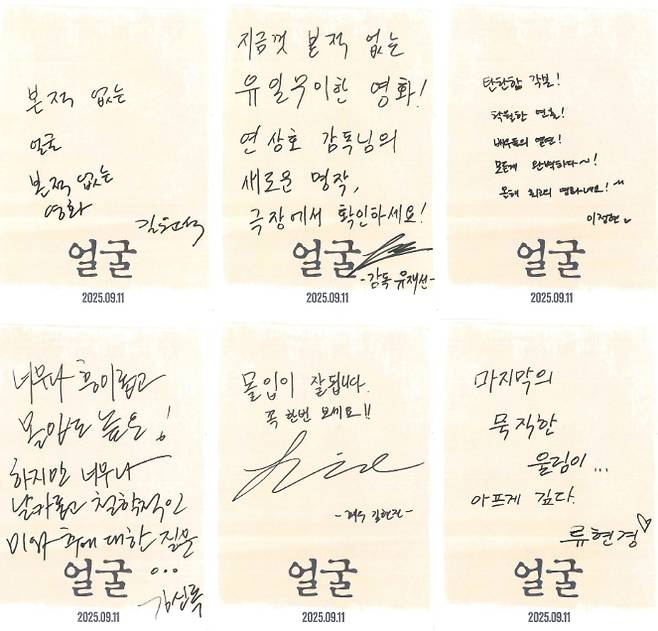 본 적 없는
얼굴
본적 없는
영화
얼굴
2025.09.11
지금껏 본적 없는
유일무이한 영화!
연상호 감독님의
새로운 명작,
극장에서 확인하세요!
얼굴
-감독 유재선-
2025.09.11
탄탄한 각본!
탁월한 연출!
배우들의 열연!
모든게 완벽하다~!
올해 최고의 영화네요!
이정현
얼굴
2025.09.11
너무나 흥미롭고
몰입도 높은!
하지만 너무나
날카롭고 철학적인
미와 추에 대한 질문
...
얼굴
김신록
2025.09.11
몰입이 잘됩니다.
꼭 한번 보세요!!
-배우 김현진-
얼굴
2025.09.11
마지막의
묵직한
울림이...
아프게 깊다.
류현경
얼굴
2025.09.11